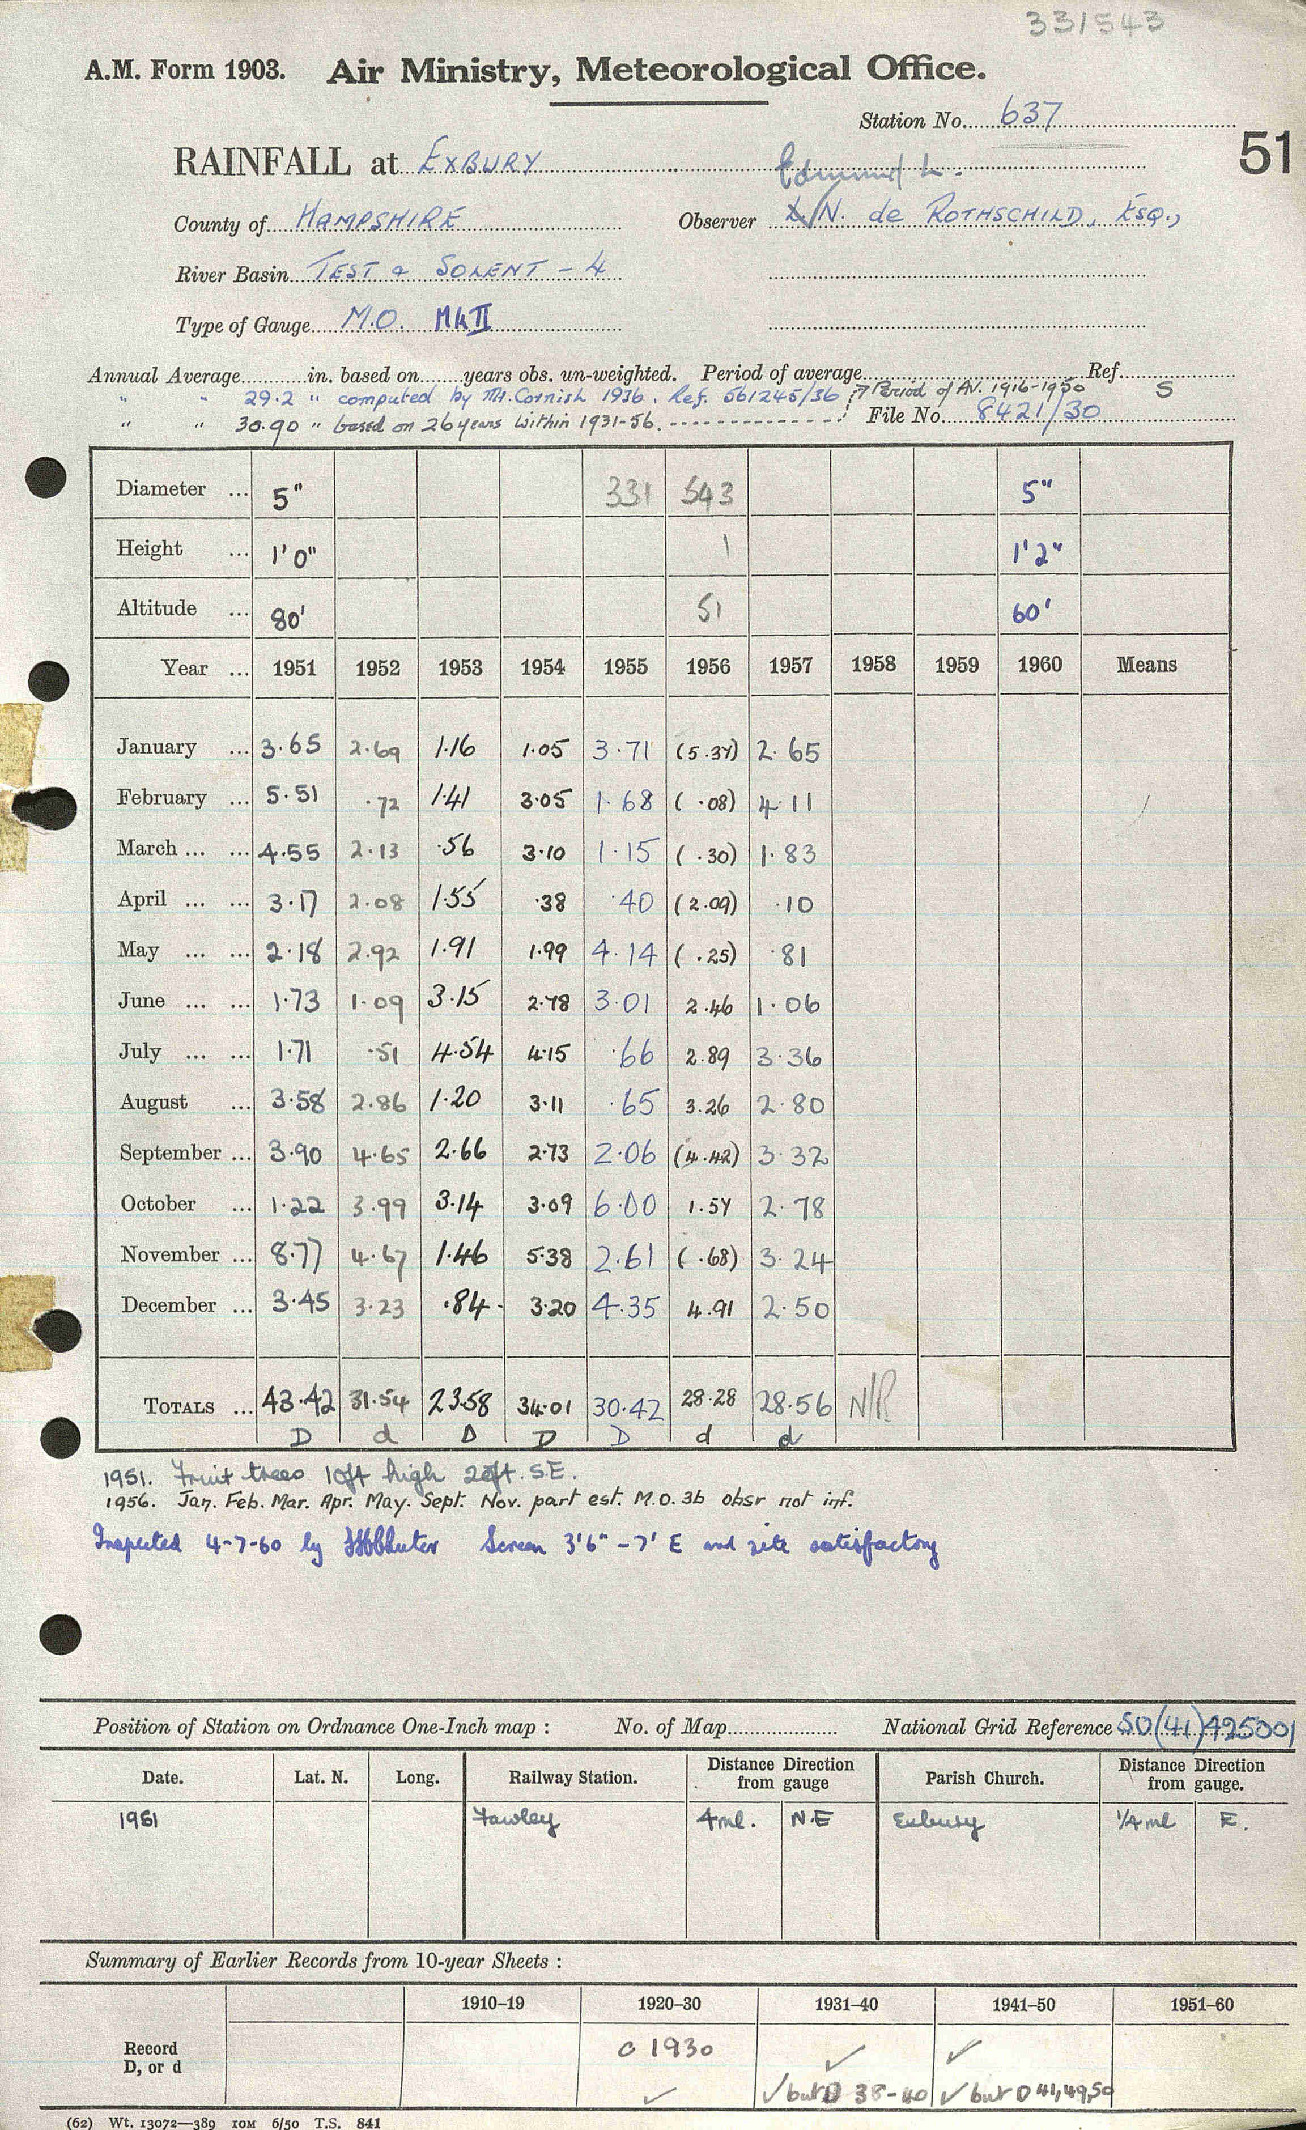 331543
A.M. Form 1903. Air Ministry, Meteorological Office.
Station No. 637
51
RAINFALL at EXBURY
Edmund L.
County of HAMPSHIRE Observer L/N. de ROTHSCHILD, ESQ.,
River Basin TEST & SOLENT - 4
Type of Gauge M.O. Mk II
Annual Average in. based on years obs. un-weighted. Period of average Ref.
" " 29.2 " computed by Mr. Cornish 1936. Ref. 561245/36 Period of AV. 1916-1950 S
" " 30.90 " based on 26 years within 1931-56. File No. 8421/30
Diameter ... 5" 331 543 5"
Height ... 1'0" 1 1'2"
Altitude ... 80' 51 60'
Year ... 1951 1952 1953 1954 1955 1956 1957 1958 1959 1960 Means
January ... 3.65 2.69 1.16 1.05 3.71 (5.37) 2.65
February ... 5.51 .72 1.41 3.05 1.68 ( .08) 4.11
March ... ... 4.55 2.13 .56 3.10 1.15 ( .30) 1.83
April ... ... 3.17 2.08 1.55 .38 .40 (2.09) .10
May ... ... 2.18 2.92 1.91 1.99 4.14 ( .25) .81
June ... ... 1.73 1.09 3.15 2.78 3.01 2.46 1.06
July ... ... 1.71 .51 4.54 4.15 .66 2.89 3.36
August ... 3.58 2.86 1.20 3.11 .65 3.26 2.80
September ... 3.90 4.65 2.66 2.73 2.06 (4.42) 3.32
October ... 1.22 3.99 3.14 3.09 6.00 1.57 2.78
November ... 8.77 4.67 1.46 5.38 2.61 ( .68) 3.24
December ... 3.45 3.23 .84 3.20 4.35 4.91 2.50
TOTALS ... 43.42 31.54 23.58 34.01 30.42 28.28 28.56 N/R
D d D D D d d
1951. Fruit trees 10ft high 20ft. S.E.
1956. Jan. Feb. Mar. Apr. May. Sept. Nov. part est. M.O. 3b obsr not inf.
Inspected 4-7-60 by Screen 3'6" - 7' E and site satisfactory
Position of Station on Ordnance One-Inch map : No. of Map National Grid Reference SO(41)425001
Date. Lat. N. Long. Railway Station. Distance from gauge Direction Parish Church. Distance from gauge. Direction
1951 Fawley 4ml. N.E Exbury 1/4 ml E.
Summary of Earlier Records from 10-year Sheets :
1910-19 1920-30 1931-40 1941-50 1951-60
Record D, or d c 1930 ✓ ✓
✓ ✓ but D 38-40 ✓ but D 41,49,50
(62) Wt. 13072—389 10M 6/50 T.S. 841